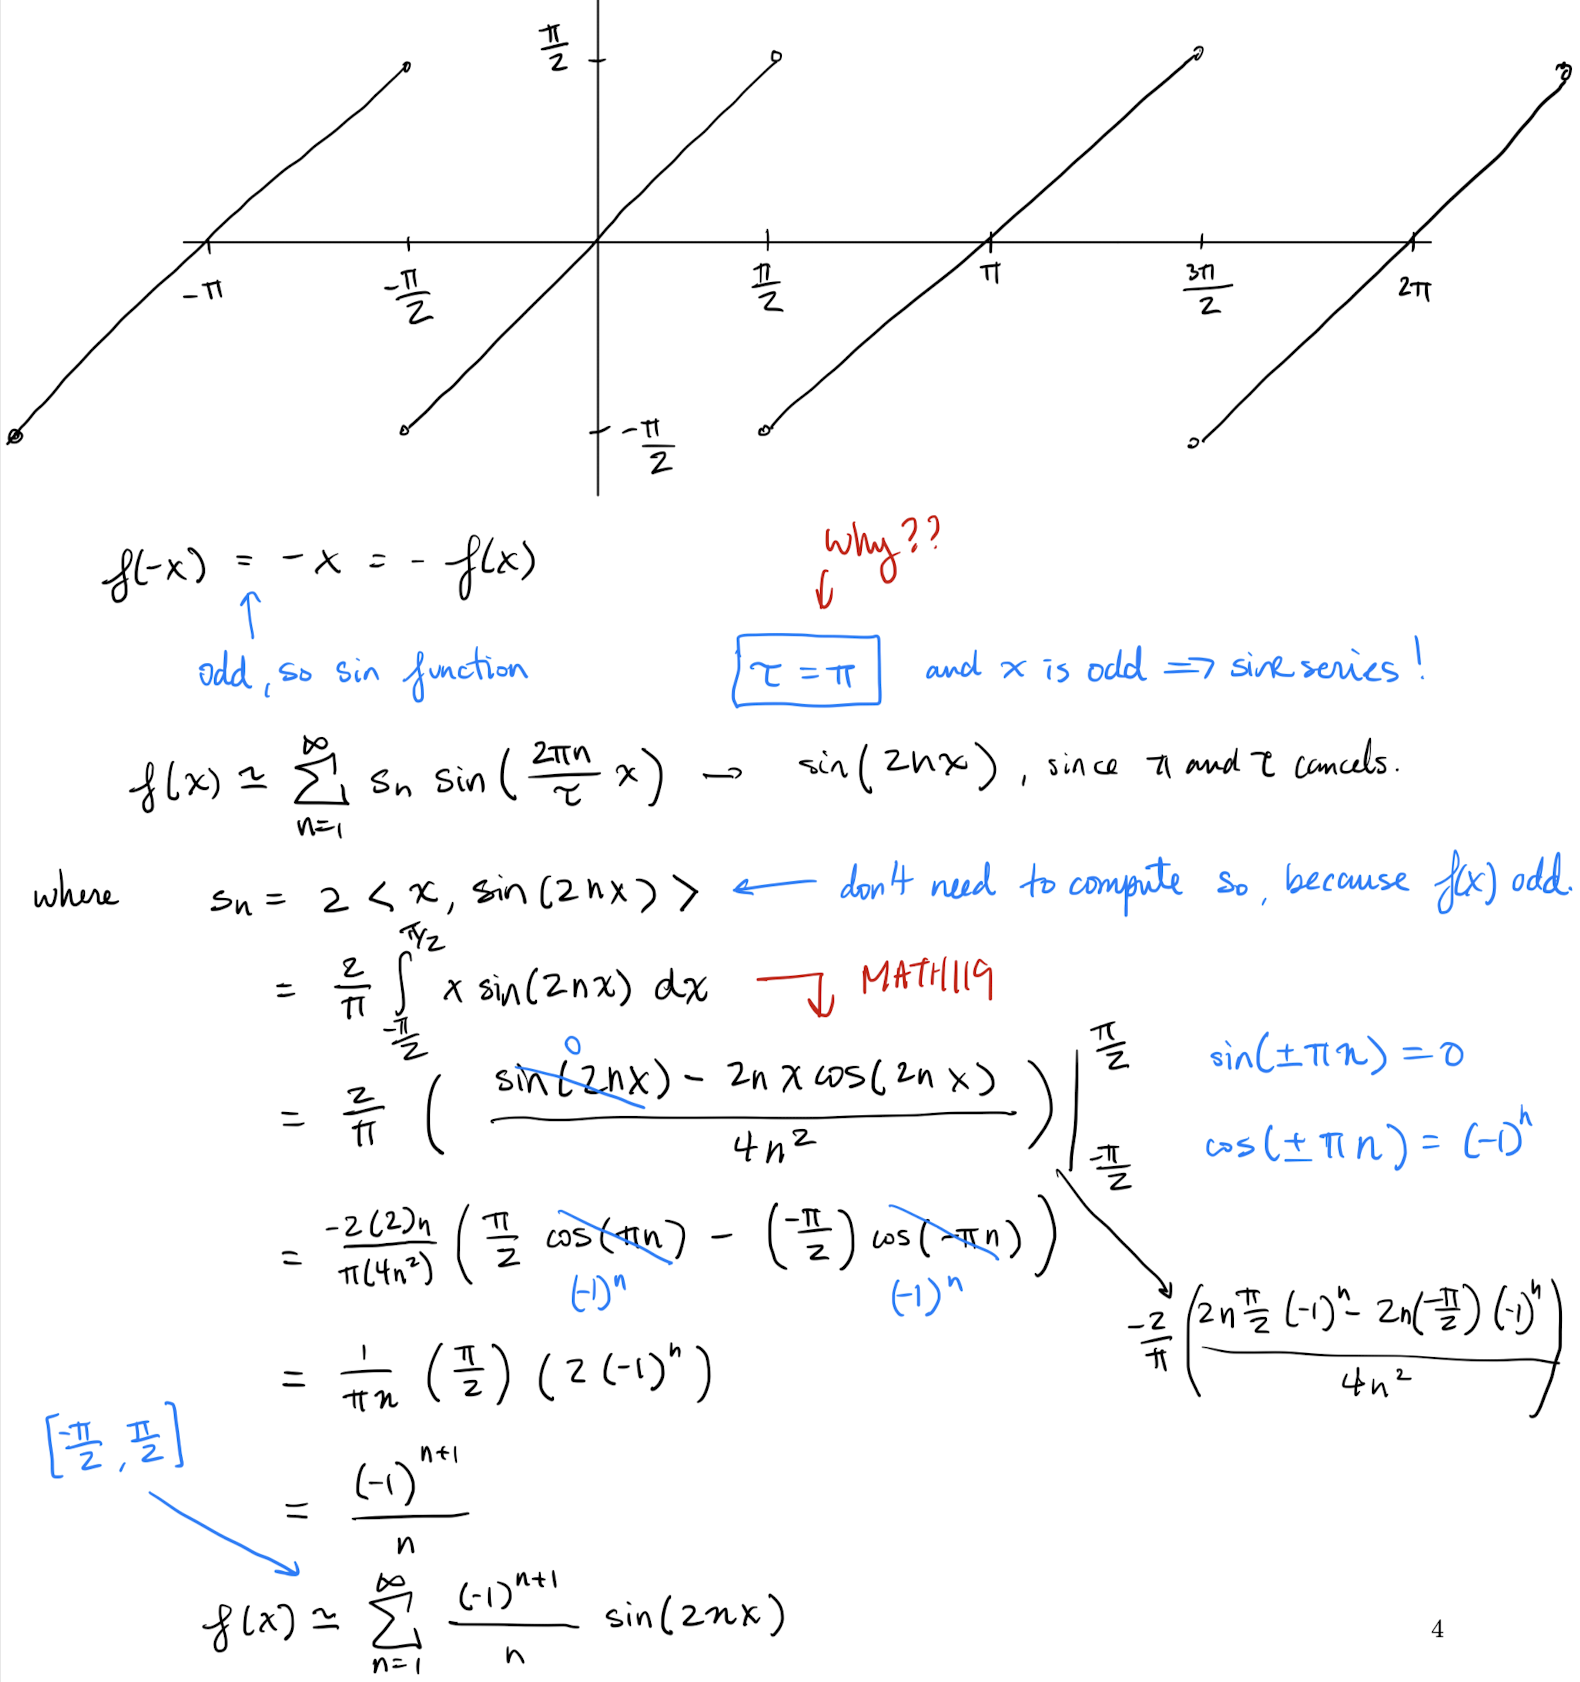 π/2
-π   -π/2   π/2   π   3π/2   2π
-π/2
why??
f(-x) = -x = - f(x)
odd, so sin function   τ = π   and x is odd => sine series!
f(x) ≃ ∑_{n=1}^{∞} s_n sin( 2πn/τ x ) → sin(2nx), since π and τ cancels.
where s_n = 2 < x, sin(2nx) > ← don't need to compute s_0, because f(x) odd.
= 2/π ∫_{-π/2}^{π/2} x sin(2nx) dx   MATH119
0
= 2/π ( (sin(2nx) - 2n x cos(2n x)) / 4n² ) |_{-π/2}^{π/2}   sin(±πn) = 0
cos(±πn) = (-1)^n
= -2(2)n / π(4n²) ( π/2 cos(πn) - (-π/2) cos(-πn) )
(-1)^n   (-1)^n
-2/π ( (2n π/2 (-1)^n - 2n(-π/2) (-1)^n) / 4n² )
= 1/πn (π/2) (2 (-1)^n)
[-π/2, π/2]
= (-1)^{n+1} / n
f(x) ≃ ∑_{n=1}^{∞} (-1)^{n+1} / n sin(2nx)
4